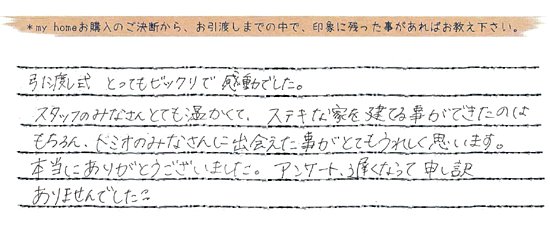 *my homeお購入のご決断から、お引渡しまでの中で、印象に残った事があればお教え下さい。
引渡し式 とってもビックリで感動でした。
スタッフのみなさんとても温かくて、ステキな家を建てる事ができたのは
もちろん、ドミオのみなさんに出会えた事がとてもうれしく思います。
本当にありがとうございました。アンケート、遅くなって申し訳
ありませんでした